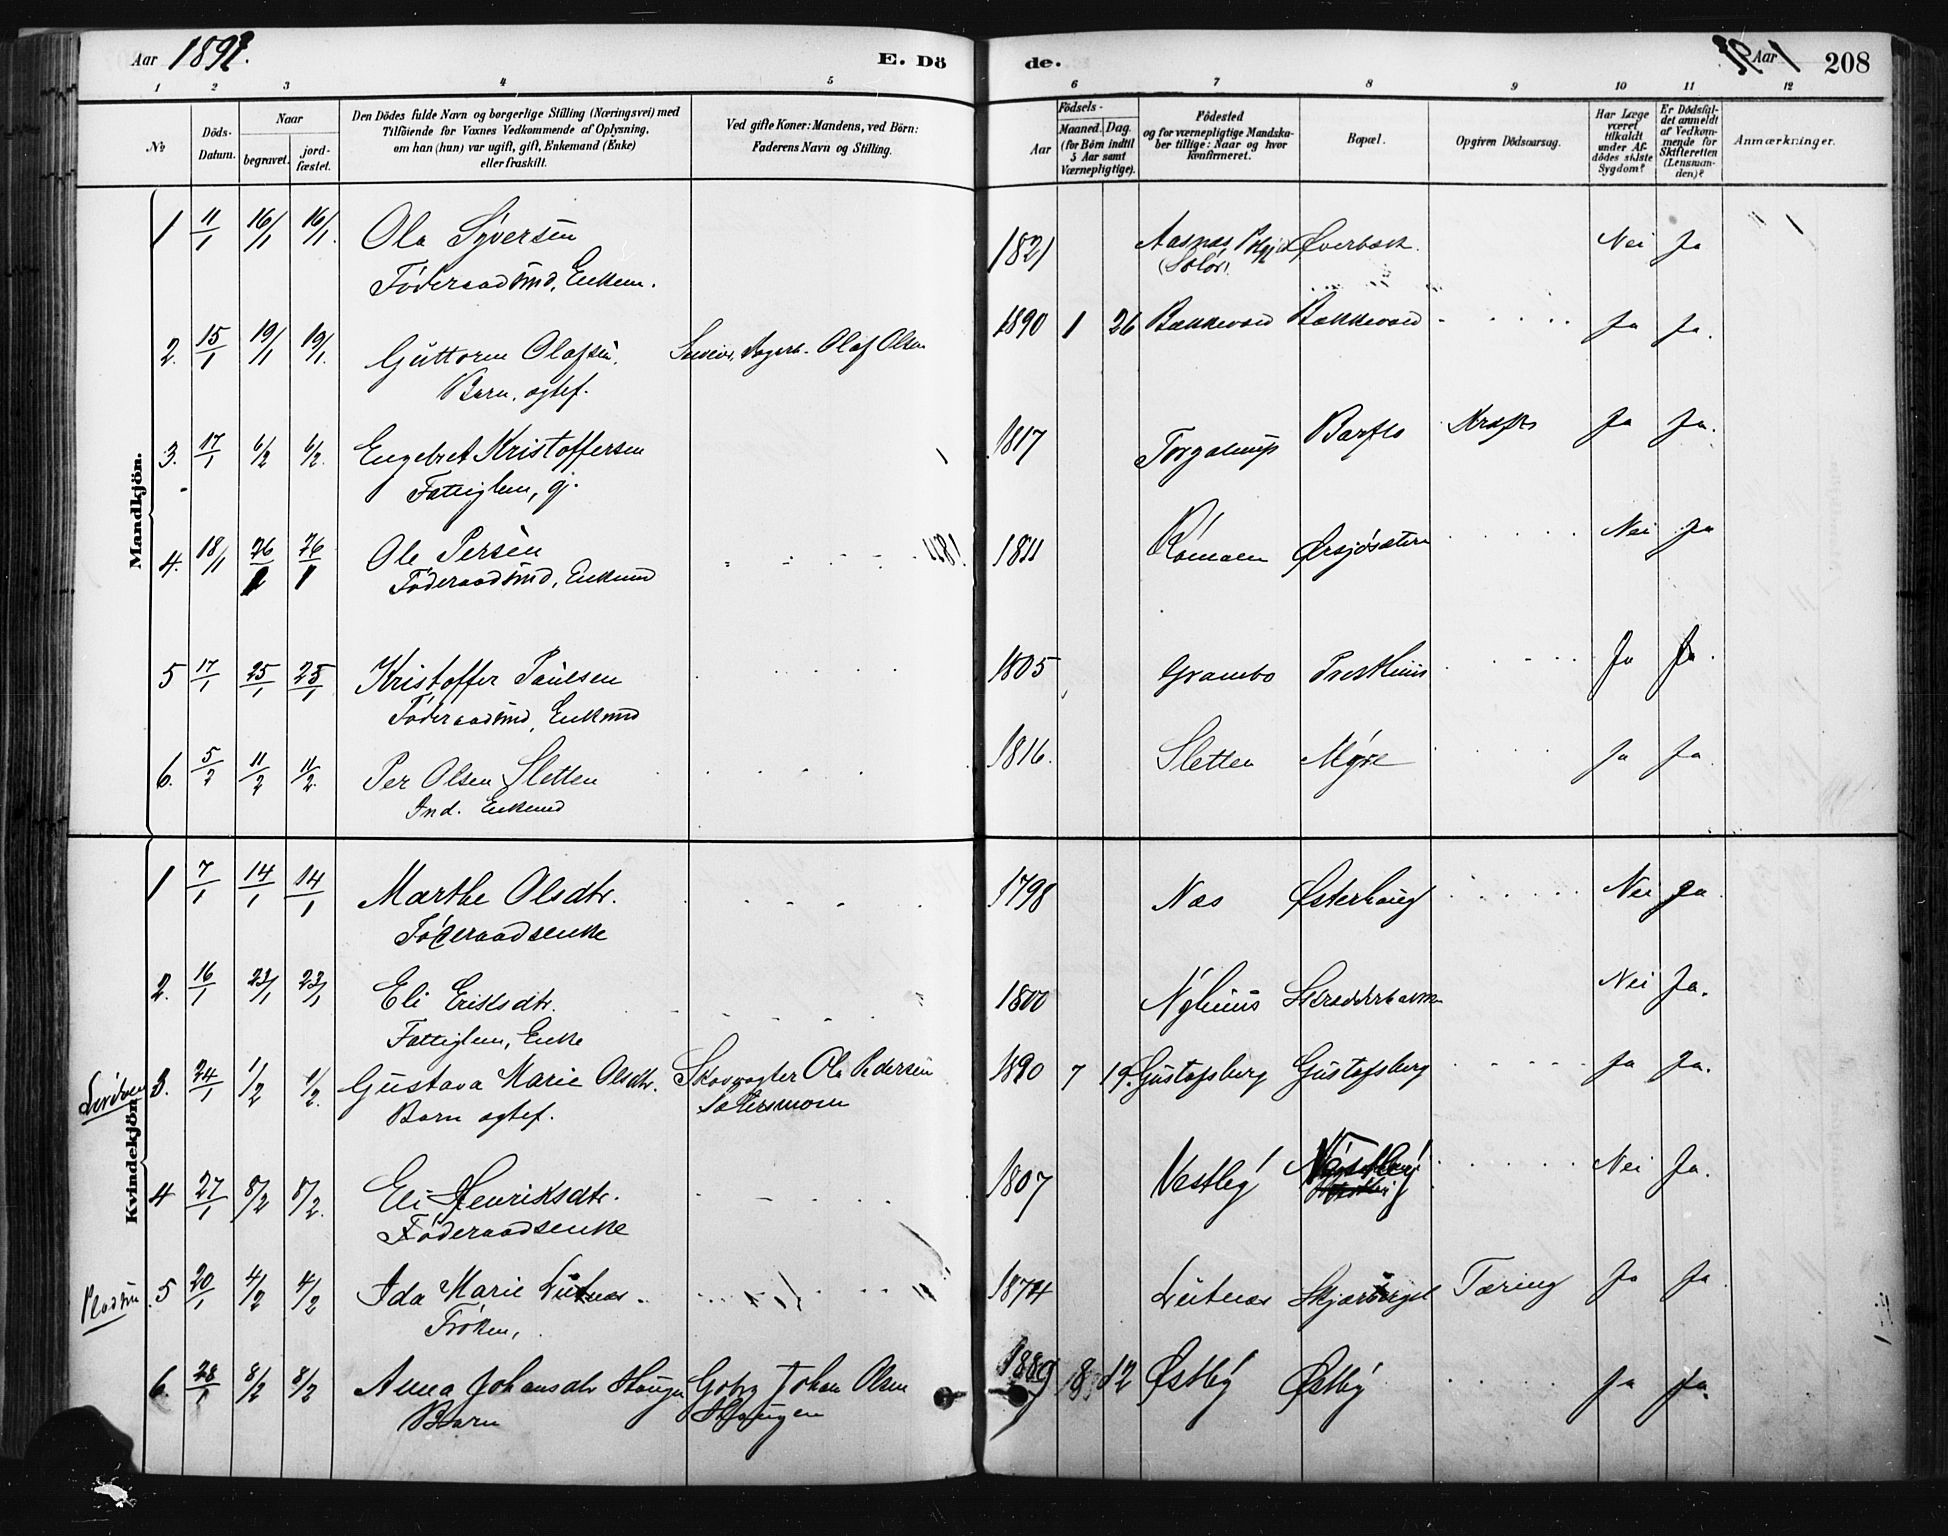 Aar 1892.
E. Dö
de.
Aar
208
1 2 3 4 5
6 7 8 9 10 11 12
No
Döds-
Datum.
Naar
begravet.
jord-
fæstet.
Den Dödes fulde Navn og borgerlige Stilling (Næringsvei) med
Tilföiende for Voxnes Vedkommende af Oplysning,
om han (hun) var ugift, gift, Enkemand (Enke)
eller fraskilt.
Ved gifte Koner: Mandens, ved Börn:
Faderens Navn og Stilling.
Födsels-
Aar
Maaned. Dag.
(for Börn indtil
5 Aar samt
Værnepligtige).
Födested
og for værnepligtige Mandska-
ber tillige: Naar og hvor
konfirmeret.
Bopæl.
Opgiven Dödsaarsag.
Har Læge
været
tilkaldt
under Af-
dödes sidste
Sygdom?
Er Dödsfal-
det anmeldt
af Vedkom-
mende for
Skifteretten
(Lensman-
den)?
Anmærkninger.
Mandkjön.
1 11/1 16/1 16/1. Ola Syversen 1821 Aasnæs Øverbæk. Nei Ja
Föderaadsmd, Enkem. (Solör)
2. 15/1 19/1 19/1. Guttorm Olafsen. Olaf Olsen 1890 1 26 Bækkevold Bækkevold Ja Ja.
Barn, ægtef.
3. 17/1 6/2 6/2. Engebret Kristoffersen 1817 Barflo Ja Ja.
Fattiglem, g.
4. 18/1 26/1 26/1 Ole Persen 1811 Ørsjösætern Nei Ja
Föderaadsmd, Enkemd
5 17/1 25/1 25/1 Kristoffer Paulsen 1805 Grambo Presthuus Ja Ja.
Föderaadsmd, Enkemd
6. 5/2 11/2 11/2. Per Olsen Sletten 1816. Sletten Myre Ja Ja.
Ind. Enkemd
Kvindekjön.
1 7/1 14/1 14/1 Marthe Olsdtr. 1798 Næs Østerhaug Nei Ja
Föderaadsenke
2. 16/1 23/1 23/1 Eli Eriksdtr. 1800 Nyhuus Nei Ja.
Fattiglem, Enke
3. 24/1 1/2 1/2. Gustava Marie Olsdtr. Skovvogter Ola Pedersen 1890 7 19. Gustafsberg Gustafsberg Ja Ja.
Barn ægtef. Sætersmoen
4 27/1 8/2 8/2. Eli Henriksdtr. 1807 Vestby Nei Ja.
Föderaadsenke
5 20/1 4/2 4/2 Ida Marie Lutnæs. 1874 Lutnæs Skjærberget Tæring Ja Ja
Fröken,
6. 28/1 8/2 8/2 Anna Johansdtr Haugen Gbrg Johan Olsen 1889 8 12 Østby Østby Ja Ja.
Barn Haugen